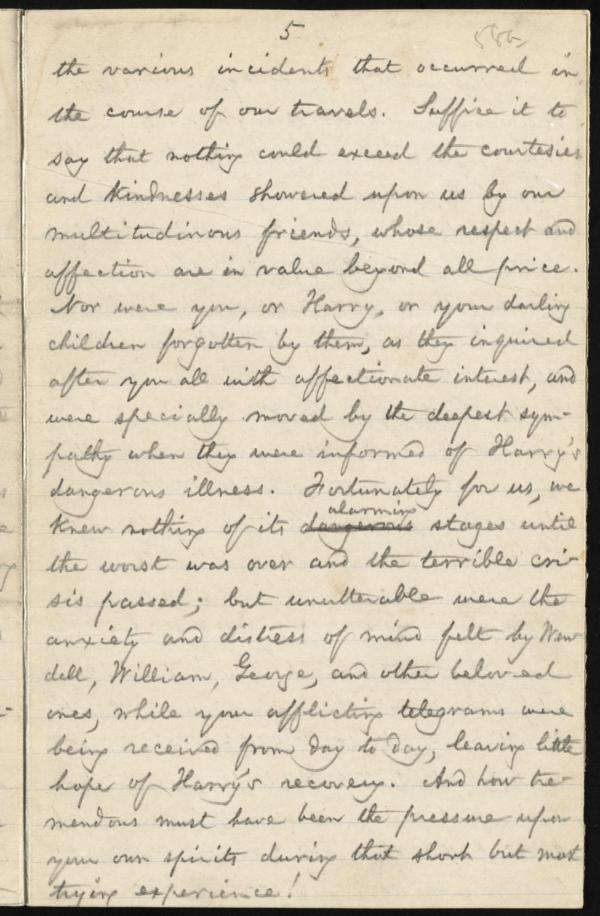 5
the various incidents that occurred in
the course of our travels. Suffice it to
say that nothing could exceed the courtesies
and kindnesses showered upon us by our
multitudinous friends, whose respect and
affection are in value beyond all price.
Nor were you, or Harry, or your darling
children forgotten by them, as they inquired
after you all with affectionate interest, and
were specially moved by the deepest sym-
pathy when they were informed of Harry's
dangerous illness. Fortunately for us, we
alarming
knew nothing of its dangerous stages until
the worst was over and the terrible cri-
sis passed; but unutterable were the
anxiety and distress of mind felt by Wen-
dell, William, George, and other beloved
ones, while your afflicting telegrams were
being received from day to day, leaving little
hope of Harry's recovery. And how tre-
mendous must have been the pressure upon
your own spirits during that short but most
trying experience!